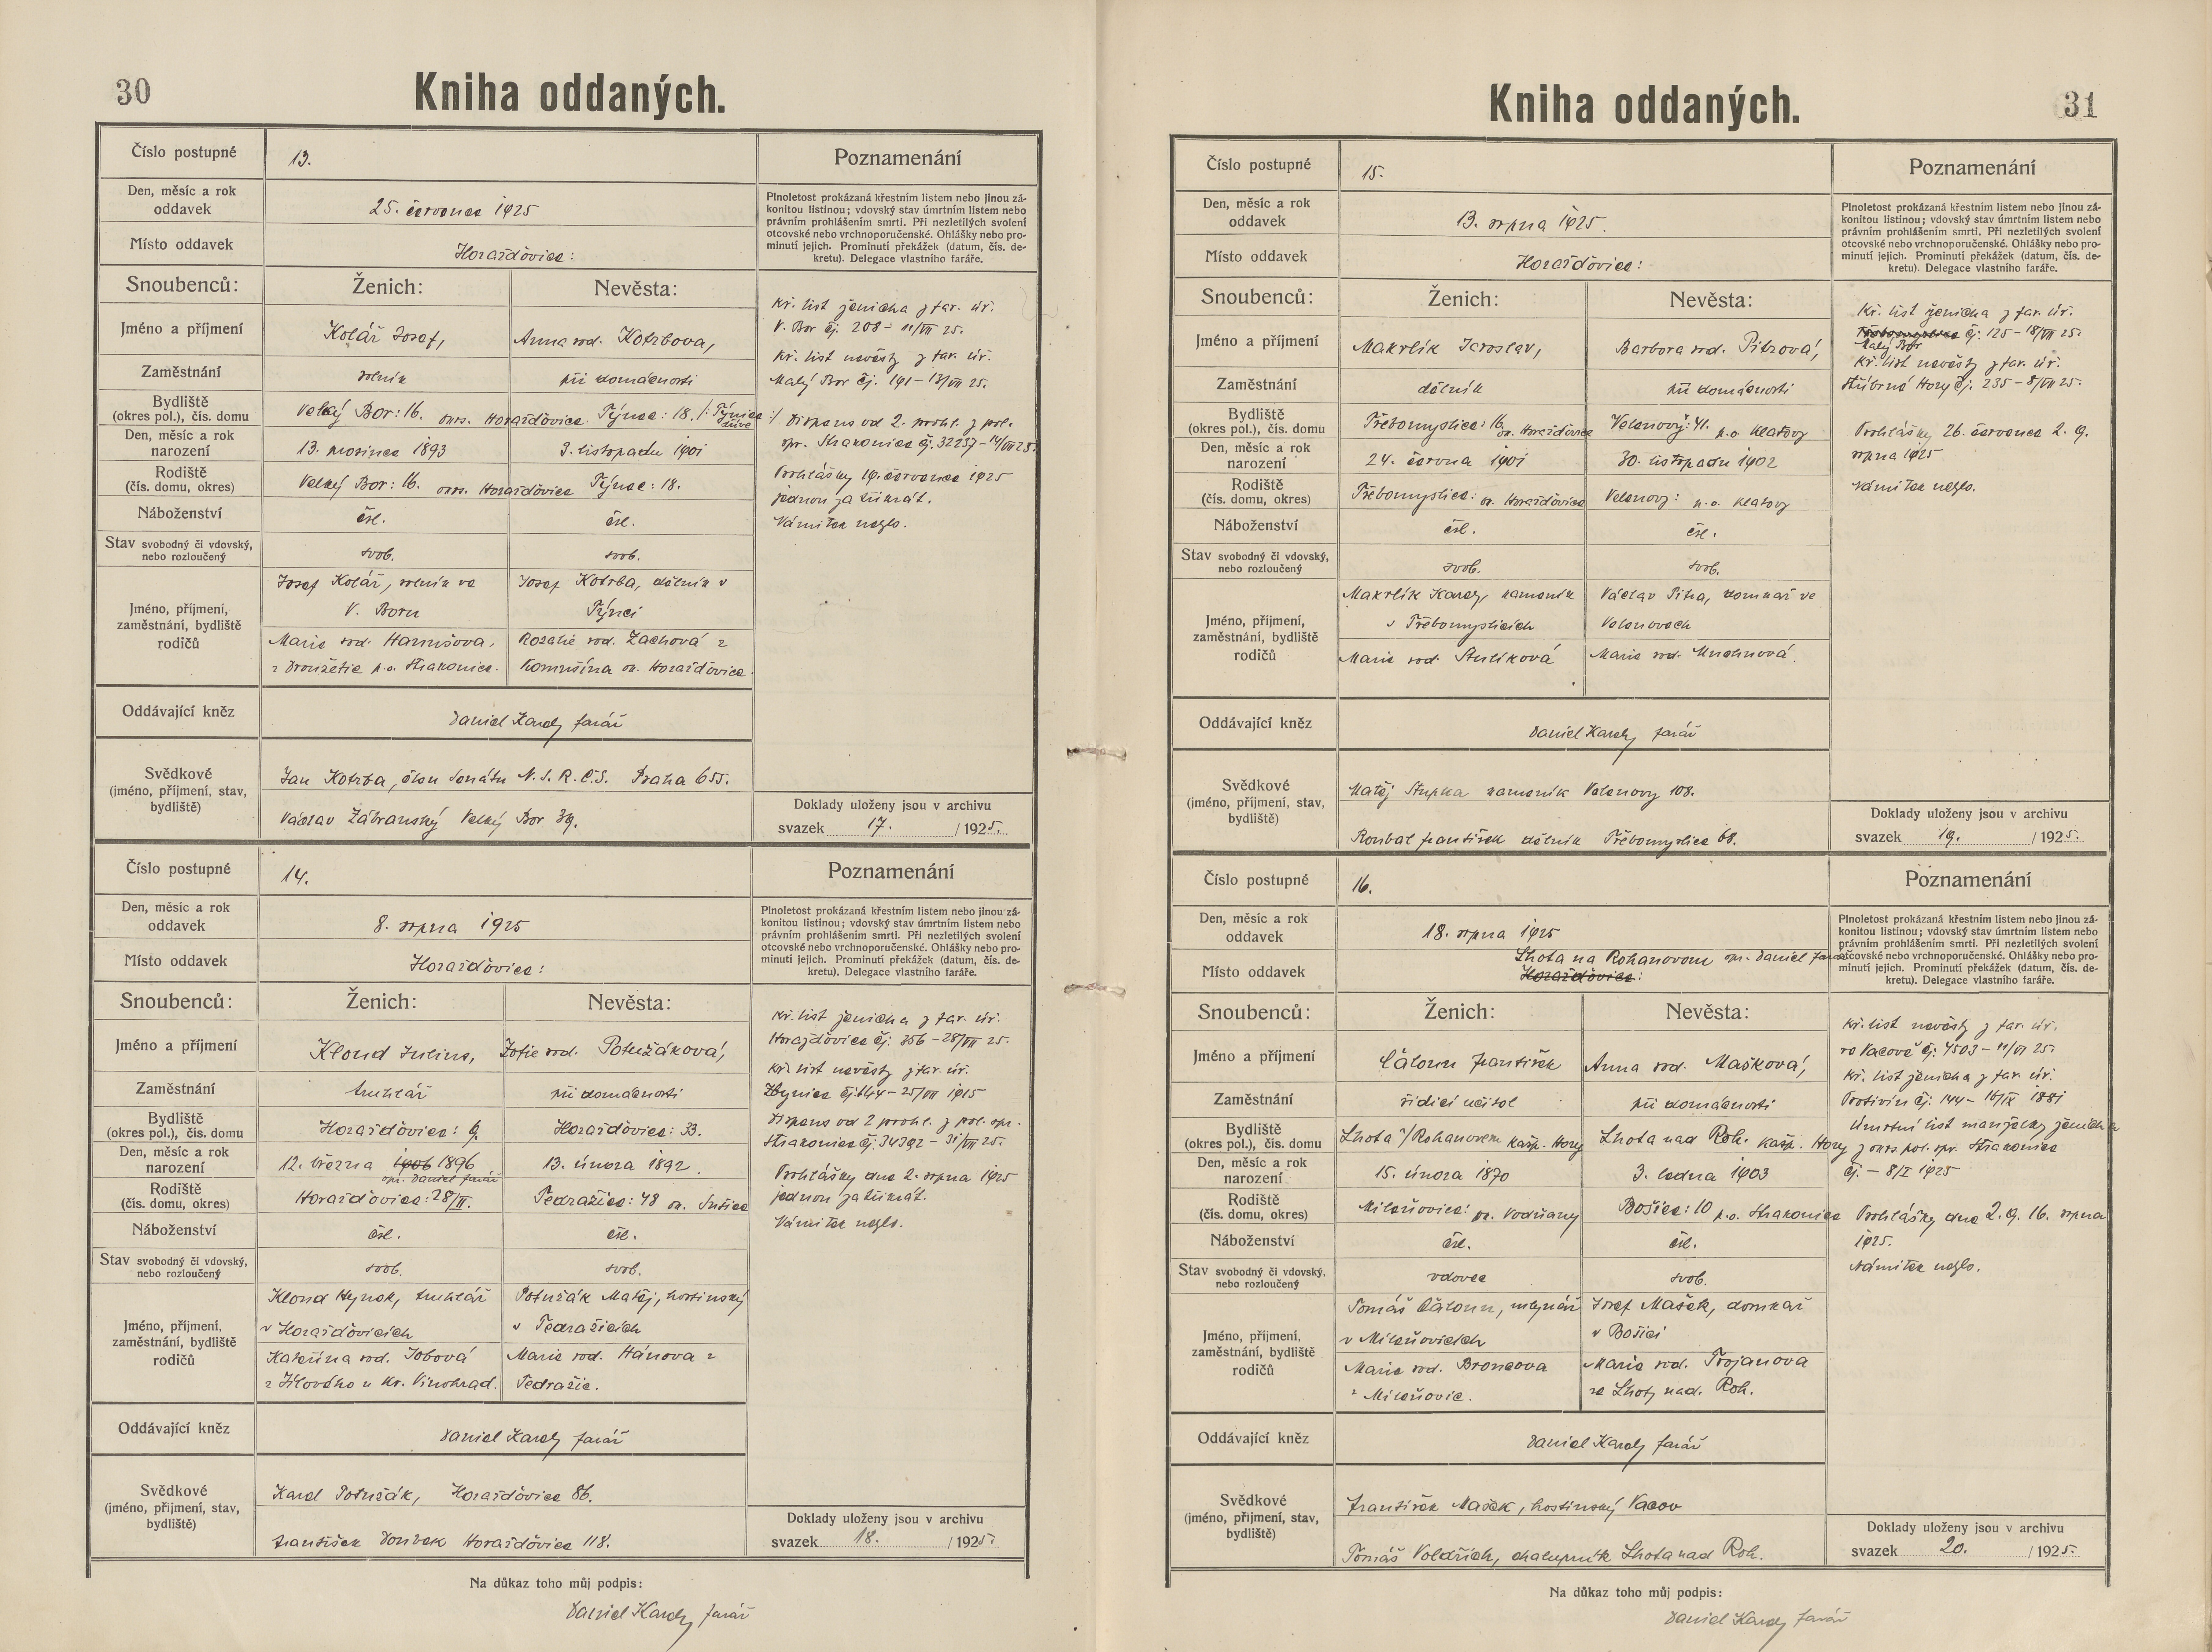 30
Kniha oddaných.
Číslo postupné
13.
Poznamenání
Den, měsíc a rok
oddavek
25. července 1925
Plnoletost prokázaná křestním listem nebo jinou zá-
konitou listinou; vdovský stav úmrtním listem nebo
právním prohlášením smrti. Při nezletilých svolení
otcovské nebo vrchnoporučenské. Ohlášky nebo pro-
minutí jejich. Prominutí překážek (datum, čís. de-
kretu). Delegace vlastního faráře.
Místo oddavek
Horažďovice:
Snoubenců:
Ženich:
Nevěsta:
Jméno a příjmení
Kolář Josef,
Anna rod. Kotrbova,
Zaměstnání
rolník
při domácnosti
Bydliště
(okres pol.), čís. domu
Velký Bor: 16. okrs. Horažďovice
Týnec: 18. /: Týnice :/
dříve
Den, měsíc a rok
narození
13. prosince 1893
3. listopadu 1901
Rodiště
(čís. domu, okres)
Velký Bor: 16. okrs. Horažďovice
Týnec: 18.
Náboženství
čsl.
čsl.
Stav svobodný či vdovský,
nebo rozloučený
svob.
svob.
Jméno, příjmení,
zaměstnání, bydliště
rodičů
Josef Kolář, rolník ve
V. Boru
Marie rod. Hanušova.
z Droužetic p.o. Strakonice.
Josef Kotrba, dělník v
Týnci
Rozalie rod. Zachová z
Komušína ok. Horažďovice.
Kř. list ženicha z far. úř.
V. Bor čj. 208 - 11/VII 25.
Kř. list nevěsty z far. úř.
Malý Bor čj. 191 - 13/VII 25.
Dispens od 2. prohl. z pol.
spr. Strakonice čj. 32237 - 14/VII 25.
Prohlášky 19. července 1925
jednou za třikrát.
Námitek nešlo.
Oddávající kněz
Daniel Karel, farář
Svědkové
(jméno, příjmení, stav,
bydliště)
Jan Kotrba, člen Senátu N.S.R.Č.S. Praha 655.
Václav Zábranský Velký Bor 39.
Doklady uloženy jsou v archivu
svazek 17. /1925.
Číslo postupné
14.
Poznamenání
Den, měsíc a rok
oddavek
8. srpna 1925
Plnoletost prokázaná křestním listem nebo jinou zá-
konitou listinou; vdovský stav úmrtním listem nebo
právním prohlášením smrti. Při nezletilých svolení
otcovské nebo vrchnoporučenské. Ohlášky nebo pro-
minutí jejich. Prominutí překážek (datum, čís. de-
kretu). Delegace vlastního faráře.
Místo oddavek
Horažďovice:
Snoubenců:
Ženich:
Nevěsta:
Jméno a příjmení
Klond Julius,
Žofie rod. Potužáková,
Zaměstnání
truhlář
při domácnosti
Bydliště
(okres pol.), čís. domu
Horažďovice: 9.
Horažďovice: 33.
Den, měsíc a rok
narození
12. března 1906 1896
opr. Daniel farář
13. února 1892.
Rodiště
(čís. domu, okres)
Horažďovice: 28/II.
Pedražice: 48 ok. Sušice
Náboženství
čsl.
čsl.
Stav svobodný či vdovský,
nebo rozloučený
svob.
svob.
Jméno, příjmení,
zaměstnání, bydliště
rodičů
Klond Hynek, truhlář
v Horažďovicích
Kateřina rod. Jobová
z Jílového u Kr. Vinohrad.
Potužák Matěj, hostinský
v Pedražicích
Marie rod. Hánova z
Pedražic.
Kř. list ženicha z far. úř.
Horažďovice čj. 356 - 28/VII 25.
Kř. list nevěsty z far. úř.
Zbynice čj. 144 - 25/VII 1915
Dispens od 2 prohl. z pol. spr.
Strakonice čj. 34392 - 31/VII 25.
Prohlášky dne 2. srpna 1925
jednou za třikrát.
Námitek nešlo.
Oddávající kněz
Daniel Karel, farář
Svědkové
(jméno, příjmení, stav,
bydliště)
Karel Potužák, Horažďovice 86.
František Doubek Horažďovice 118.
Doklady uloženy jsou v archivu
svazek 18. /1925.
Na důkaz toho můj podpis:
Daniel Karel, farář
31
Kniha oddaných.
Číslo postupné
15.
Poznamenání
Den, měsíc a rok
oddavek
13. srpna 1925.
Plnoletost prokázaná křestním listem nebo jinou zá-
konitou listinou; vdovský stav úmrtním listem nebo
právním prohlášením smrti. Při nezletilých svolení
otcovské nebo vrchnoporučenské. Ohlášky nebo pro-
minutí jejich. Prominutí překážek (datum, čís. de-
kretu). Delegace vlastního faráře.
Místo oddavek
Horažďovice:
Snoubenců:
Ženich:
Nevěsta:
Jméno a příjmení
Makrlík Jaroslav,
Barbora rod. Pitrová,
Zaměstnání
dělník
při domácnosti
Bydliště
(okres pol.), čís. domu
Třebomyslice: 16 ok. Horažďovice
Velenovy: 41. p.o. Klatovy
Den, měsíc a rok
narození
24. června 1901
30. listopadu 1902
Rodiště
(čís. domu, okres)
Třebomyslice: ok. Horažďovice
Velenovy: p.o. Klatovy
Náboženství
čsl.
čsl.
Stav svobodný či vdovský,
nebo rozloučený
svob.
svob.
Jméno, příjmení,
zaměstnání, bydliště
rodičů
Makrlík Karel, kameník
v Třebomyslicích
Marie rod. Stulíková
Václav Pitra, domkař ve
Velenovech
Marie rod. Muchnová.
Kř. list ženicha z far. úř.
Třebomyslice čj. 125 - 18/VII 25.
Malý Bor
Kř. list nevěsty z far. úř.
Stříbrné Hory čj. 235 - 8/VII 25.
Prohlášky 26. července 2. 9.
srpna 1925
Námitek nešlo.
Oddávající kněz
Daniel Karel, farář
Svědkové
(jméno, příjmení, stav,
bydliště)
Matěj Stupka kameník Velenovy 108.
Roubal František dělník Třebomyslice 68.
Doklady uloženy jsou v archivu
svazek 19. /1925.
Číslo postupné
16.
Poznamenání
Den, měsíc a rok
oddavek
18. srpna 1925
Plnoletost prokázaná křestním listem nebo jinou zá-
konitou listinou; vdovský stav úmrtním listem nebo
právním prohlášením smrti. Při nezletilých svolení
otcovské nebo vrchnoporučenské. Ohlášky nebo pro-
minutí jejich. Prominutí překážek (datum, čís. de-
kretu). Delegace vlastního faráře.
Místo oddavek
Lhota na Rohanovem opr. Daniel farář
Horažďovice:
Snoubenců:
Ženich:
Nevěsta:
Jméno a příjmení
Čáloun František
Anna rod. Mašková,
Zaměstnání
řídicí učitel
při domácnosti
Bydliště
(okres pol.), čís. domu
Lhota n/Rohanovem Kašp. Hory
Lhota nad Roh. Kašp. Hory
Den, měsíc a rok
narození
15. února 1870
3. ledna 1903
Rodiště
(čís. domu, okres)
Milenovice: ok. Vodňany
Bošice: 10 p.o. Strakonice
Náboženství
čsl.
čsl.
Stav svobodný či vdovský,
nebo rozloučený
vdovec
svob.
Jméno, příjmení,
zaměstnání, bydliště
rodičů
Tomáš Čáloun, mlynář
v Milenovicích
Marie rod. Broncova
z Milenovic.
Josef Mašek, domkař
v Bošici
Marie rod. Trojanova
ze Lhoty nad. Roh.
Kř. list nevěsty z far. úř.
ve Vacově čj. 4503 - 11/VI 25.
Kř. list ženicha z far. úř.
Protivín čj. 144 - 16/IX 1881
Úmrtní list manželky ženicha
z okrs. pol. spr. Strakonice
čj. - 8/I 1925
Prohlášky dne 2. 9. 16. srpna
1925.
Námitek nešlo.
Oddávající kněz
Daniel Karel, farář
Svědkové
(jméno, příjmení, stav,
bydliště)
František Mašek, hostinský Vacov
Tomáš Voldřich, chalupník Lhota nad Roh.
Doklady uloženy jsou v archivu
svazek 20. /1925.
Na důkaz toho můj podpis:
Daniel Karel, farář